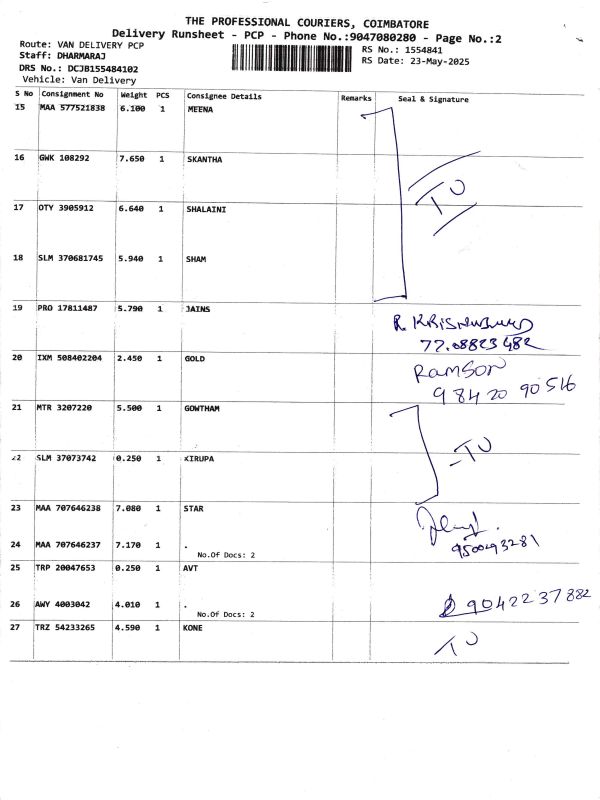 THE PROFESSIONAL COURIERS, COIMBATORE
Delivery Runsheet - PCP - Phone No.:9047080280 - Page No.:2
Route: VAN DELIVERY PCP
RS No.: 1554841
Staff: DHARMARAJ
RS Date: 23-May-2025
DRS No.: DCJB155484102
Vehicle: Van Delivery
S No Consignment No Weight PCS Consignee Details Remarks Seal & Signature
15 MAA 577521838 6.100 1 MEENA
16 GWK 108292 7.650 1 SKANTHA
TU
17 OTY 3905912 6.640 1 SHALAINI
18 SLM 370681745 5.940 1 SHAM
19 PRO 17811487 5.790 1 JAINS
R.
77.08823482
20 IXM 508402204 2.450 1 GOLD
RAMSON
98420 90516
21 MTR 3207220 5.500 1 GOWTHAM
TU
22 SLM 37073742 0.250 1 KIRUPA
23 MAA 707646238 7.080 1 STAR
24 MAA 707646237 7.170 1 .
No.Of Docs: 2
25 TRP 20047653 0.250 1 AVT
26 AWY 4003042 4.010 1 .
9042237882
No.Of Docs: 2
27 TRZ 54233265 4.590 1 KONE
TU